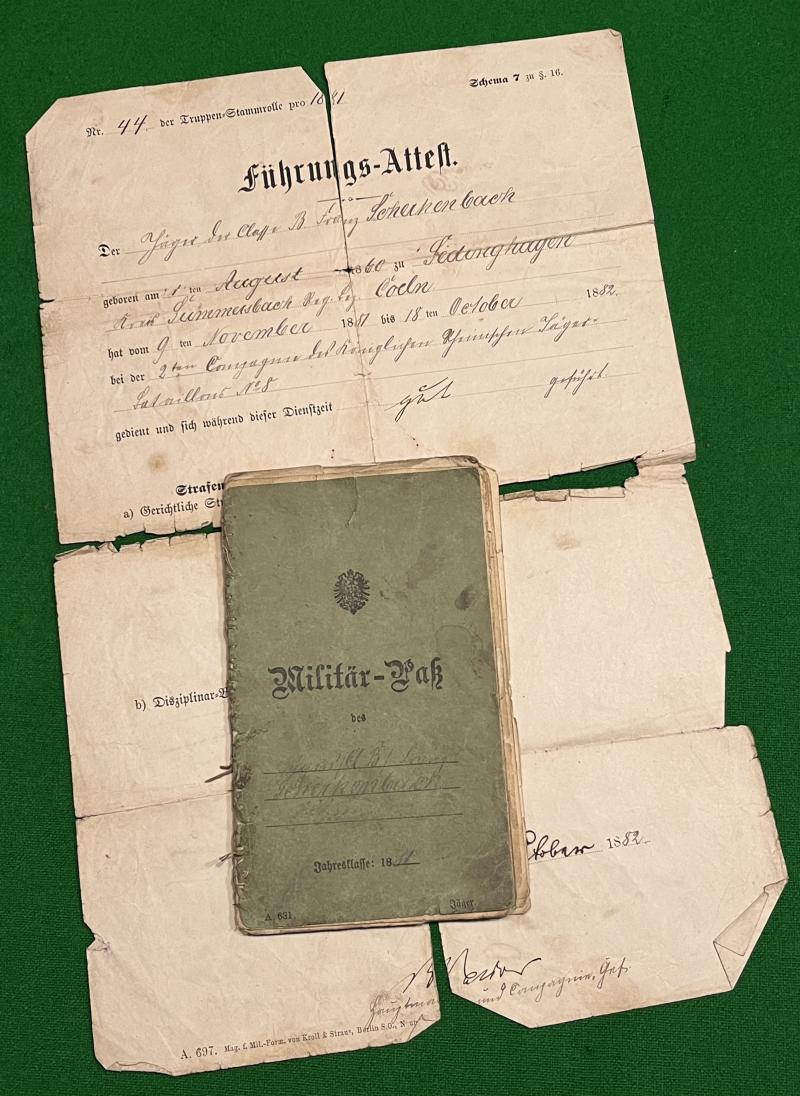 Schema 7 zu §. 16.
Nr. 44. der Truppen-Stammrolle pro 1881
Führungs-Attest.
Der Jäger der Classe B Franz Scherkenbach
geboren am ten August 1860 zu
Kreis Gummersbach Reg. Bez. Coeln
hat vom 9 ten November 1881 bis 18 ten October 1882.
bei der 2ten Compagnie des Königlichen Rheinischen Jäger-
Bataillons No 8
gedient und sich während dieser Dienstzeit gut geführt.
Strafen
a) Gerichtliche St
b) Disziplinar-
Militär-Paß
des
Scherkenbach
Jahresklasse: 18
A. 631.
Jäger
ctober 1882.
Hauptma und Compagnie-Chef.
A. 697. Mag. f. Mil.-Form. von Kroll & Straus, Berlin S.O., N